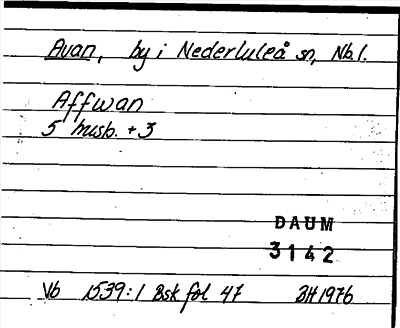 Avan, by i Nederluleå sn, Nb.l.
Affwan
5 husb. + 3
DAUM
3142
Vb 1539:1 Bsk fol 47 BH 1976